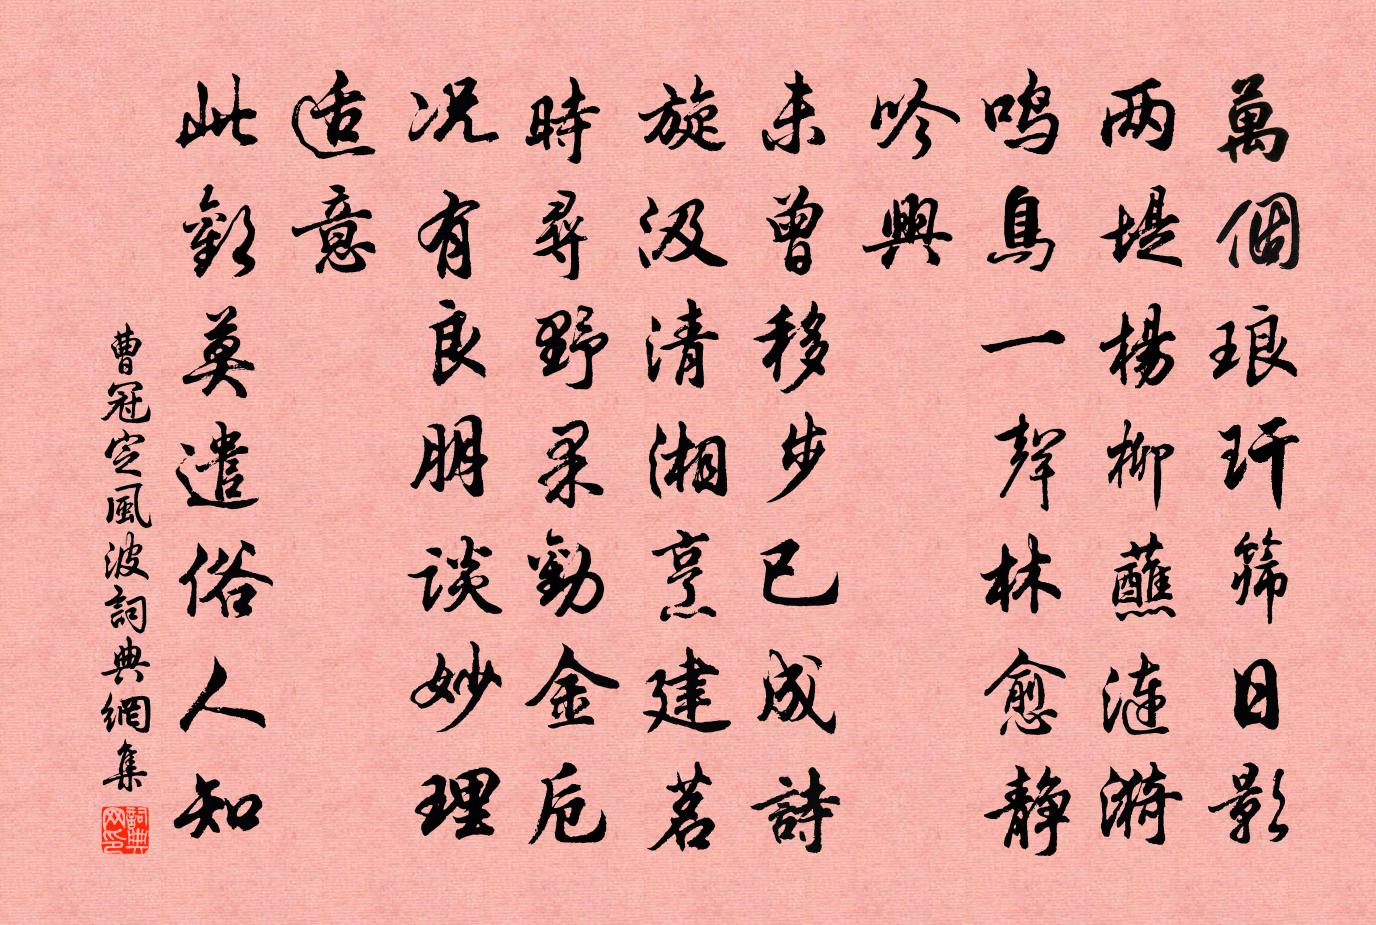 萬個琅玕篩日影
两堤楊柳蘸漣漪
鳴鳥一聲林愈靜
吟興
未曾移步已成詩
旋汲清湘烹建茗
時尋野采勸金卮
况有良朋談妙理
适意
此歡莫遣俗人知
曹冠定風波詞典網集
詞典网印